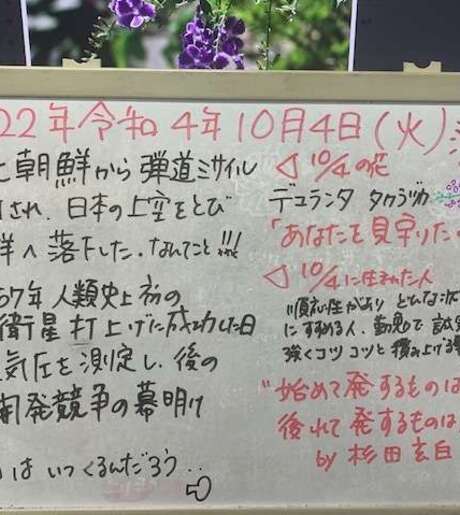 22年令和4年10月4日(火)
朝鮮から弾道ミサイル
され、日本の上空をとび
洋へ落下した。なんてこと!!!
57年人類史上初の
衛星打上げに成功した日
気圧を測定し、後の
開発競争の幕明け
はいつくるんだろう..
◁10/4の花
デュランタ タカラヅカ
「あなたを見守りた
◁10/4に生まれた人
順応性があり どんな
にすすめる人、勤勉で
強くコツコツと積み上げる
"始めて発するものは
後れて発するものは
by 杉田玄白